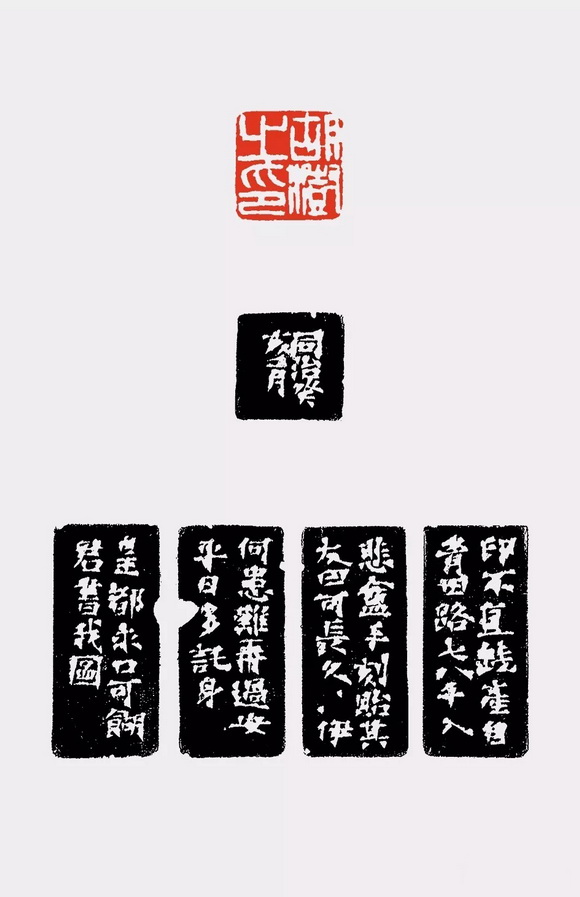 胡澍
之印
同治癸
亥月
印不直錢產自
青田路七八年入
悲盦手刻貽其
友曰可長久、、伊
何患難再過安
平日多託身
皇都求口可餬
君替我圖